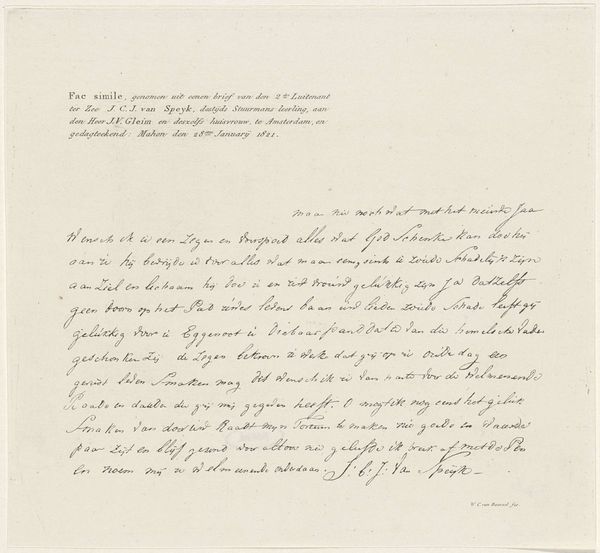 Fac simile, genomen uit eenen brief van den 2den Luitenant
ter Zee J. C. J. van Speyk, destyds Stuurmans leerling, aan
den Heer J.V. Gleim en deszelfs huisvrouw, te Amsterdam, en
gedagteekend: Mahon den 28sten Januarij 1821.
maar nu noch wat met het nieuwe Jaar
Wensch ik u een Zegen en voorspoed alles wat God Schenke kan dat hij
aan u hij bevrijde u voor alles wat maar eenigsints u zoude Schadelijk Zijn
aan Ziel en lichaam hij doe u en uw vrouw gelukkig zijn Ja
geen doorn op het Pad uwes levens baan uw lieden zoude Schade leeft gij
gelukkig door u Eggenoot u Dierbaar pand dat u van die hemelsche Vader
geschonken Zij de Zegen bekroon u Werk dat gij op u oude dag een
gerust leven Smaken mag Dit Wensch ik u van harte voor de Welmeenende
Raad en daaden die gij mij gegeven heeft. O mogt ik nog eens het geluk
Smaken van door uw Raadt myn Fortuin te maken nu goede en Waarde
paar Zijt en blijf gezond voor altoos nu geliefde ik breek af met de Pen
En noem mij u Welmeenende onderdaan. J: C: J: Van Speijk
W. C. van Baarsel fec.